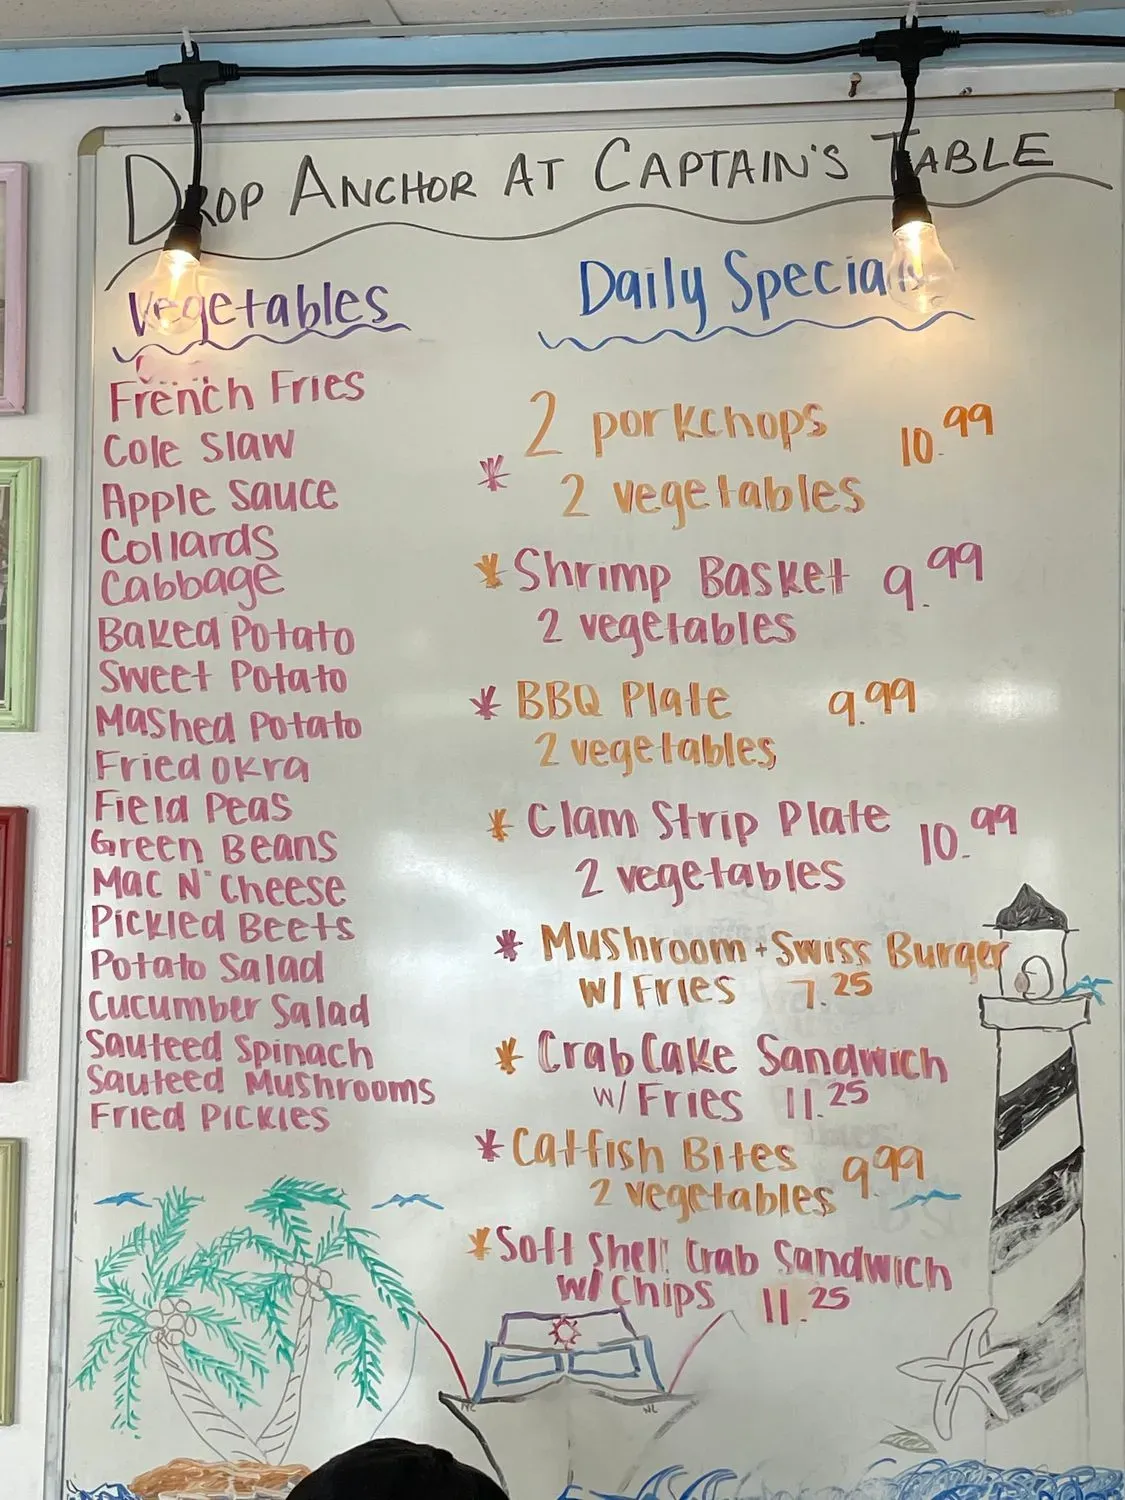 DROP ANCHOR AT CAPTAIN'S TABLE
Vegetables
French Fries
Cole Slaw
Apple Sauce
Collards
Cabbage
Baked Potato
Sweet Potato
Mashed Potato
Fried Okra
Field Peas
Green Beans
Mac N' Cheese
Pickled Beets
Potato Salad
Cucumber Salad
Sauteed Spinach
Sauteed Mushrooms
Fried Pickles
Daily Specials
2 porkchops 10.99
* 2 vegetables
* Shrimp Basket 9.99
2 vegetables
* BBQ Plate 9.99
2 vegetables
* Clam Strip Plate 10.99
2 vegetables
* Mushroom + Swiss Burger
w/ Fries 7.25
* Crab Cake Sandwich
w/ Fries 11.25
* Catfish Bites 9.99
2 vegetables
* Soft Shell Crab Sandwich
w/ Chips 11.25